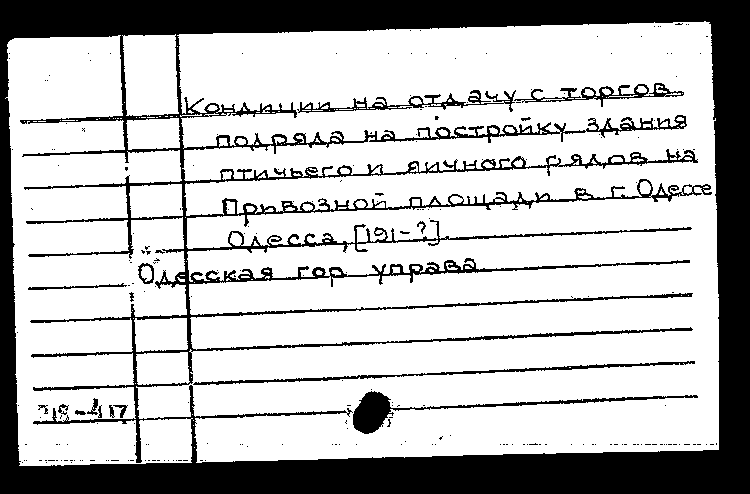 Кондиции на отдачу с торгов
подряда на постройку здания
птичьего и яичного рядов на
Привозной площади в г. Одессе
Одесса, [191-?].
Одесская гор управа